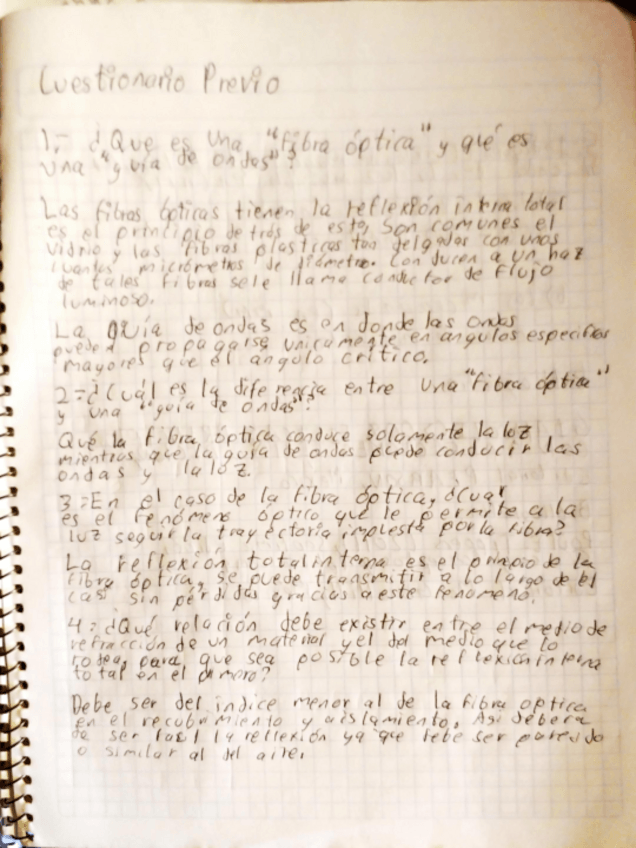 Cuestionario Previo
1.- ¿Que es una "fibra óptica" y qué es
una "guía de ondas"?
Las fibras ópticas tienen la reflexión interna total
es el principio detrás de esto, Son comunes el
vidrio y las fibras plasticas tan delgadas con unos
cuantos micrómetros de diámetro. Conducen a un haz
de tales fibras se le llama conductor de flujo
luminoso.
La guía de ondas es en donde las ondas
pueden propagarse unicamente en angulos especificos
mayores que el angulo crítico.
2.- ¿Cuál es la diferencia entre una "fibra óptica"
y una "guía de ondas"?
Qué la fibra óptica conduce solamente la loz
mientras que la guía de ondas puede conducir las
ondas y la loz.
3.- En el caso de la fibra óptica, ¿cuar
es el fenómeno óptico que le permite a la
luz seguir la trayectoria impuesta por la fibra?
La reflexión total interna es el principio de la
fibra óptica, se puede transmitir a lo largo de el
casi sin pérdidas gracias a este fenomeno.
4.- ¿Qué relación debe existir entre el medio de
refracción de un material y el del medio que lo
rodea, para que sea posible la reflexión interna
total en el primero?
Debe ser del indice menor al de la fibra optica
en el recubrimiento y aislamiento. Asi debera
de ser facil la reflexión ya que debe ser parecido
o similar al del aire.